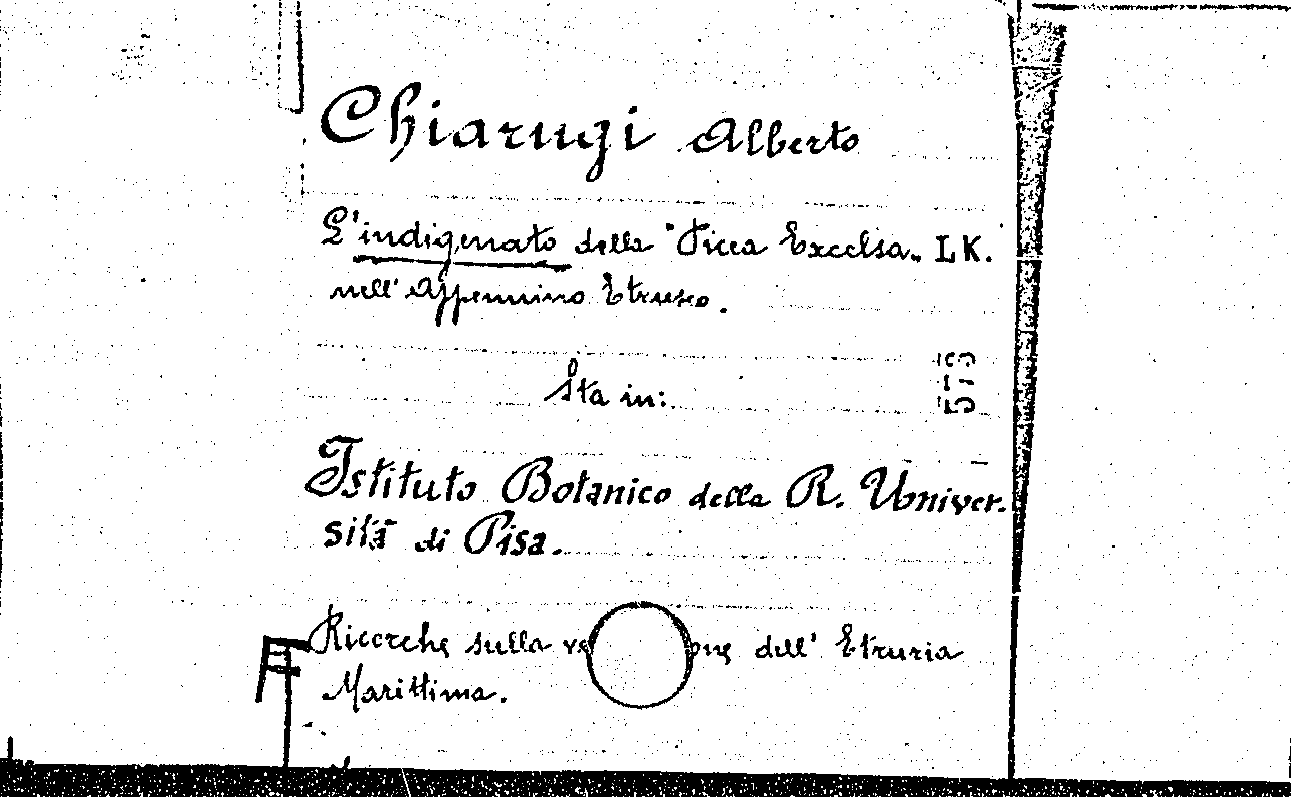 Chiarugi Alberto
L'indigenato della "Picea Excelsa„ LK.
nell'Appennino Etrusco.
573
Sta in:
Istituto Botanico della R. Univer-
sità di Pisa.
Ricerche sulla dell' Etruria
Marittima.